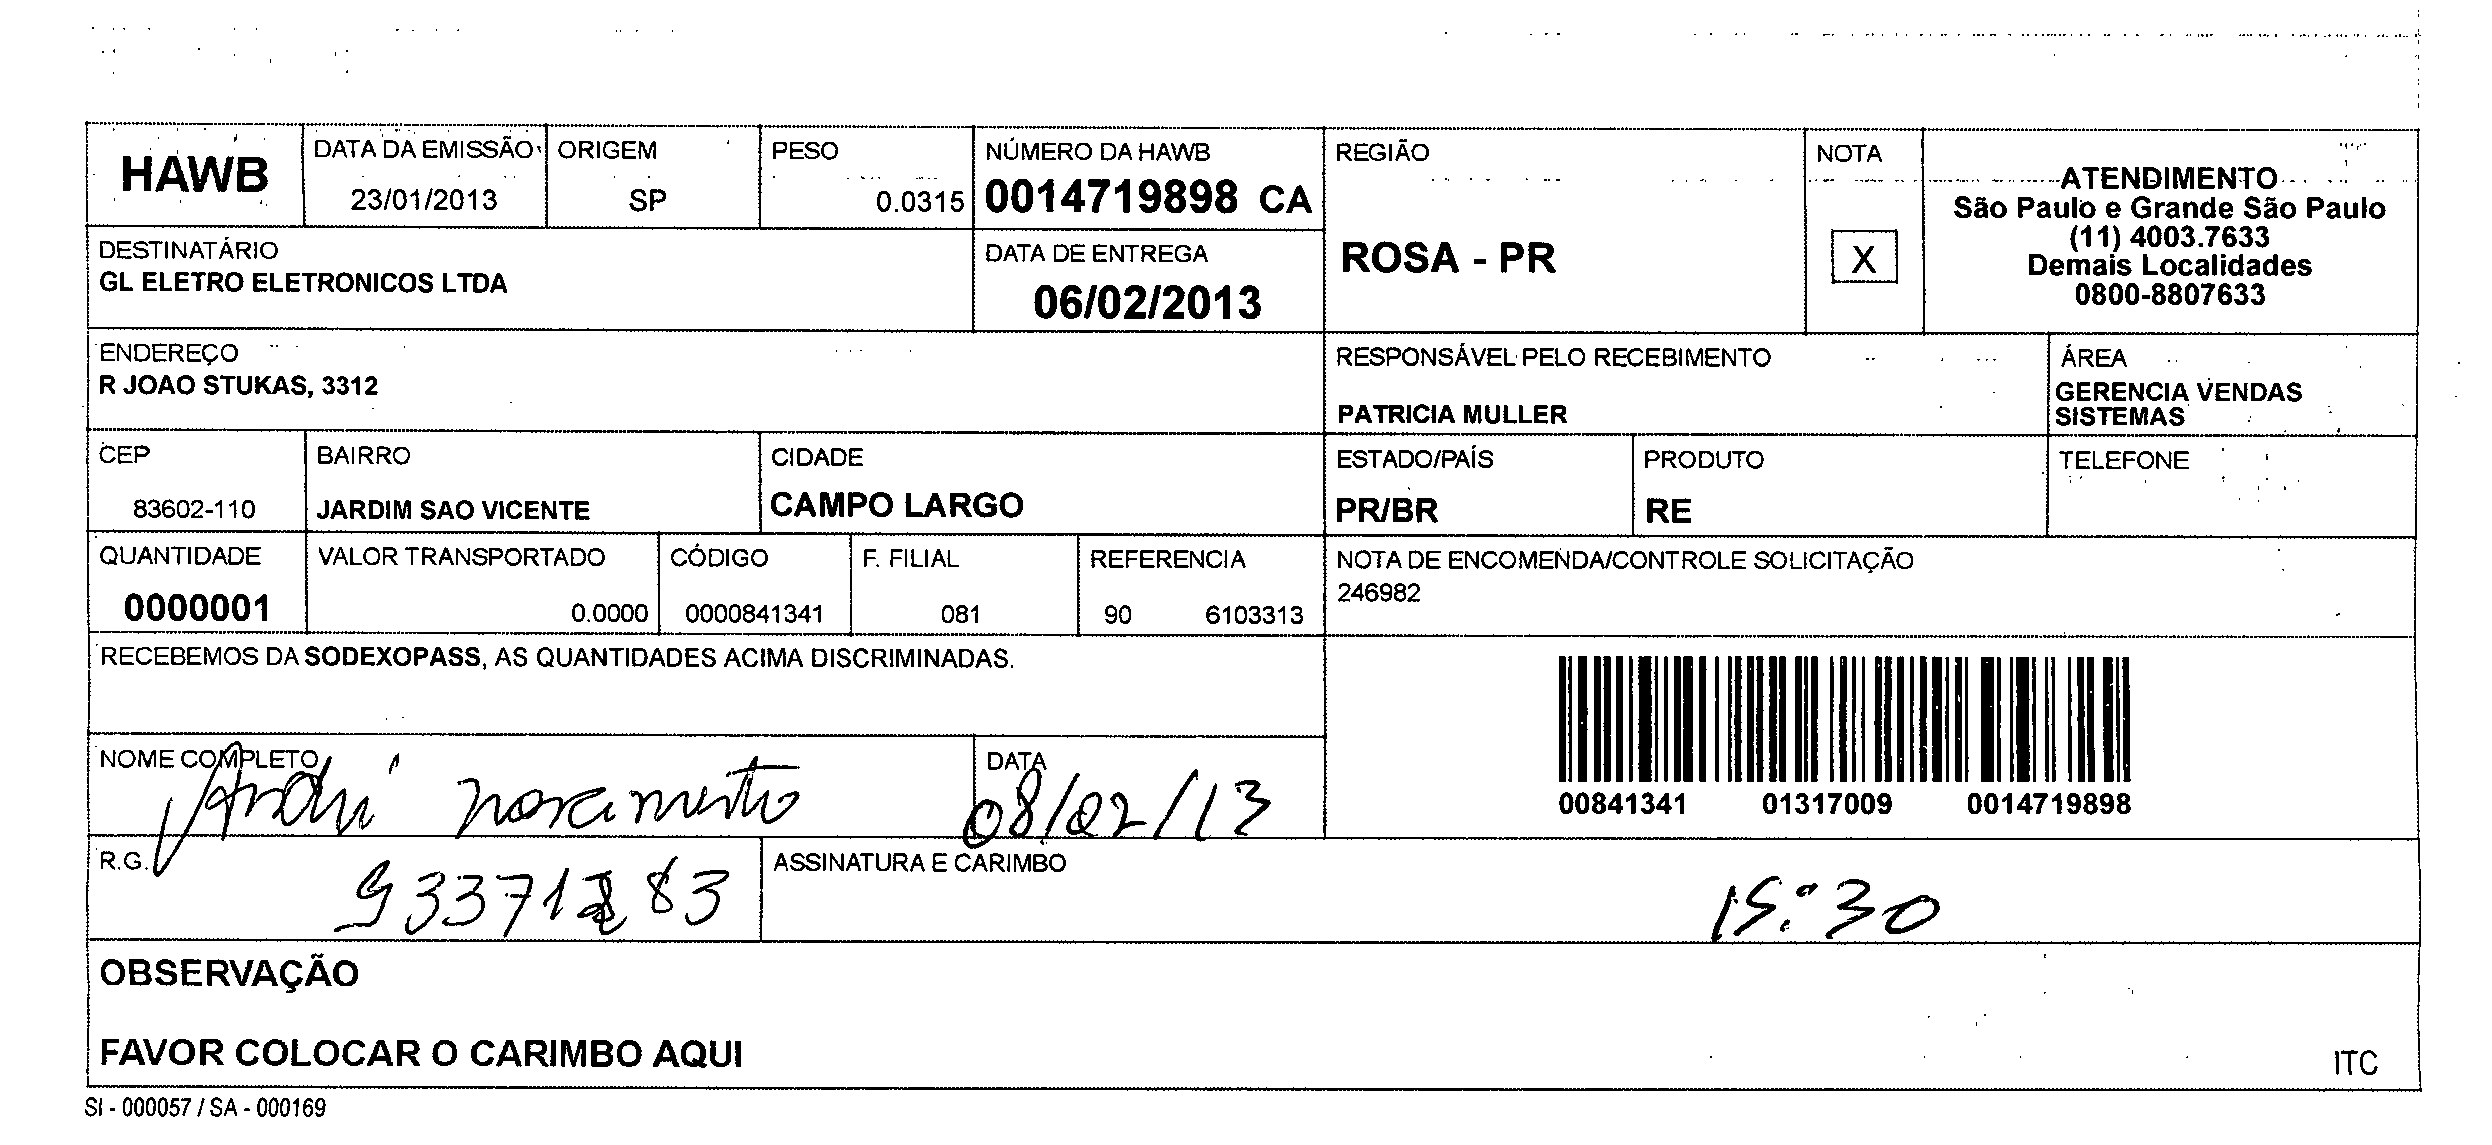 HAWB
DATA DA EMISSÃO
23/01/2013
ORIGEM
SP
PESO
0.0315
NÚMERO DA HAWB
0014719898 CA
REGIÃO
ROSA - PR
NOTA
X
ATENDIMENTO
São Paulo e Grande São Paulo
(11) 4003.7633
Demais Localidades
0800-8807633
DESTINATÁRIO
GL ELETRO ELETRONICOS LTDA
DATA DE ENTREGA
06/02/2013
ENDEREÇO
R JOAO STUKAS, 3312
RESPONSÁVEL PELO RECEBIMENTO
PATRICIA MULLER
ÁREA
GERENCIA VENDAS
SISTEMAS
CEP
83602-110
BAIRRO
JARDIM SAO VICENTE
CIDADE
CAMPO LARGO
ESTADO/PAÍS
PR/BR
PRODUTO
RE
TELEFONE
QUANTIDADE
0000001
VALOR TRANSPORTADO
0.0000
CÓDIGO
0000841341
F. FILIAL
081
REFERENCIA
90 6103313
NOTA DE ENCOMENDA/CONTROLE SOLICITAÇÃO
246982
RECEBEMOS DA SODEXOPASS, AS QUANTIDADES ACIMA DISCRIMINADAS.
00841341 01317009 0014719898
NOME COMPLETO
André nascimento
DATA
08/02/13
R.G.
ASSINATURA E CARIMBO
15:30
OBSERVAÇÃO
FAVOR COLOCAR O CARIMBO AQUI
ITC
SI - 000057 / SA - 000169